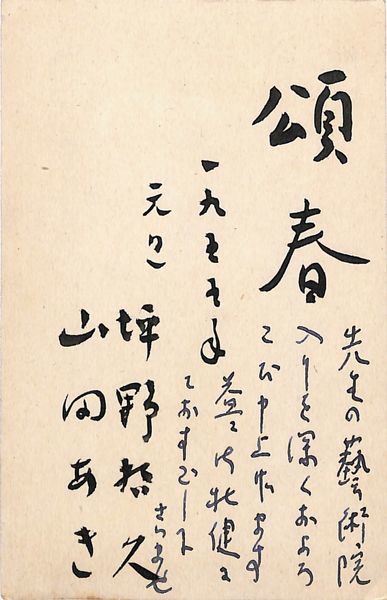 頌春
一九五五年
元旦
坪野哲久
山田あき
先生の藝術院
入りを深くおよろ
こび申上げます
益々御壮健に
ておすごし下
さいませ